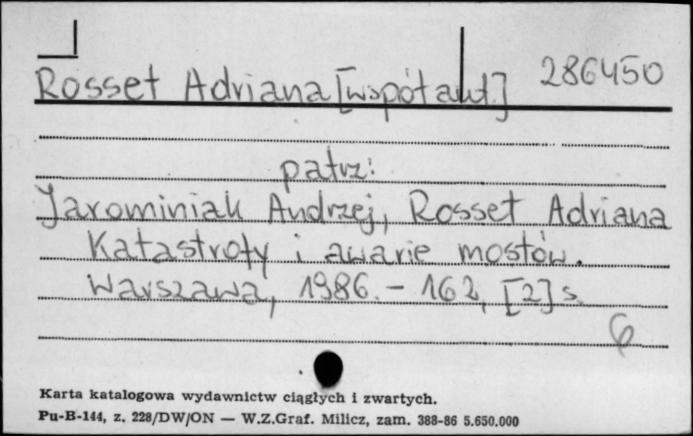 Rosset Adriana [współaut.] 286450
patrz:
Jarominiak Andrzej, Rosset Adriana
Katastrofy i awarie mostów.
Warszawa, 1986. - 162, [2] s.
6
Karta katalogowa wydawnictw ciągłych i zwartych.
Pu-B-144, z. 228/DW/ON — W.Z.Graf. Milicz, zam. 388-86 5.650.000